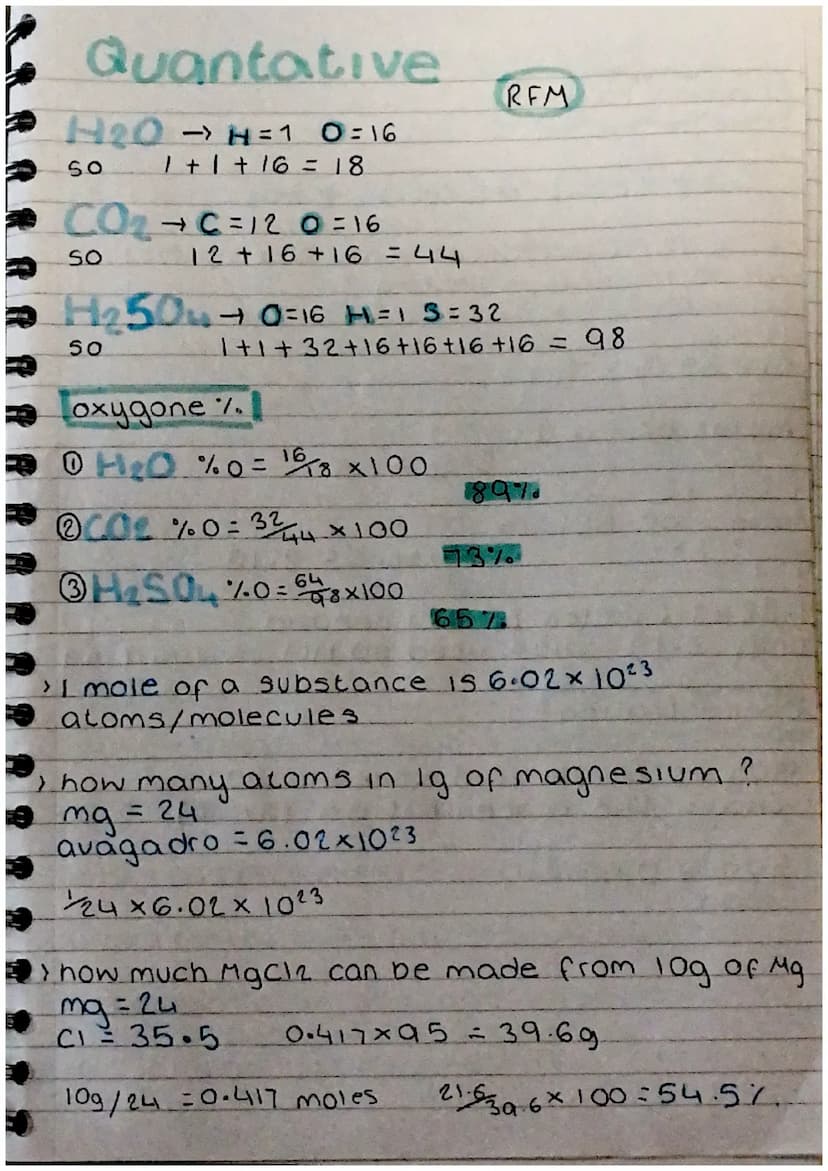 Quantative
RFM
H2O → H = 1 O = 16
so 1 + 1 + 16 = 18
CO2 → C = 12 O = 16
so 12 + 16 + 16 = 44
H2SO4 → O=16 H=1 S=32
so 1+1+32+16+16+16+16 = 98
oxygone %
① H2O %O = 16/18 ×100
89%
② CO2 %O = 32/44 × 100
73%
③ H2SO4 %O = 64/98 ×100
65%
› 1 mole of a substance is 6.02 × 10²³
atoms/molecules
› how many atoms in 1g of magnesium ?
mg = 24
avagadro = 6.02×10²³
1/24 × 6.02 × 10²³
› how much MgCl2 can be made from 10g of Mg
mg = 24
Cl = 35.5 0.417×95 = 39.6g
10g/24 = 0.417 moles 21.6/39.6 × 100 = 54.5%.